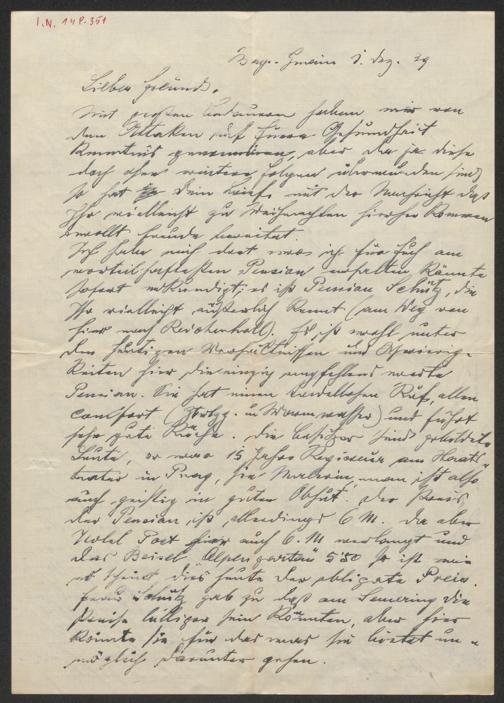 I.N. 148.351
Bayr. Gmain 5. Dez. 39
Lieber Freund.
Mit großem Bedauern haben wir von
den Attaken auf Eurer Gesundheit
Kenntnis genommen, aber da ja diese
doch ohne weitere Folgen überwunden sind,
so hat Dein Brief mit der Nachricht daß
Ihr vielleicht zu Weihnachten hierher kommen
wollt Freude bereitet.
Ich habe mich dort wo ich für Euch am
vorteilhaftesten Pension erhalten könnte
sofort erkundigt; es ist Pension Schütz, die
Ihr vielleicht äußerlich kennt (am Weg von
hier nach Reichenhall). Es ist wohl unter
den heutigen Verhältnissen und Schwierig-
keiten hier die einzig empfehlenswerte
Pension. Sie hat einen tadellosen Ruf, allen
Comfort (Heizg. u. Warmwasser) und führt
sehr gute Küche. Die Besitzer sind gebildete
Leute, er war 15 Jahre Regisseur am Staats-
teater in Prag, sie Malerin, man ist also
auch geistig in guter Obhut. Der Preis
der Pension ist allerdings 6 M. Da aber
Hotel Post hier auch 6 M verlangt und
das Beisel Alpengarten 5'50 so ist wie
es scheint dies heute der obligate Preis.
Frau Schütz gab zu daß am Semering die
Preise billiger sein könnten, aber hier
könnte sie für das was sie bietet un-
möglich darunter gehen.